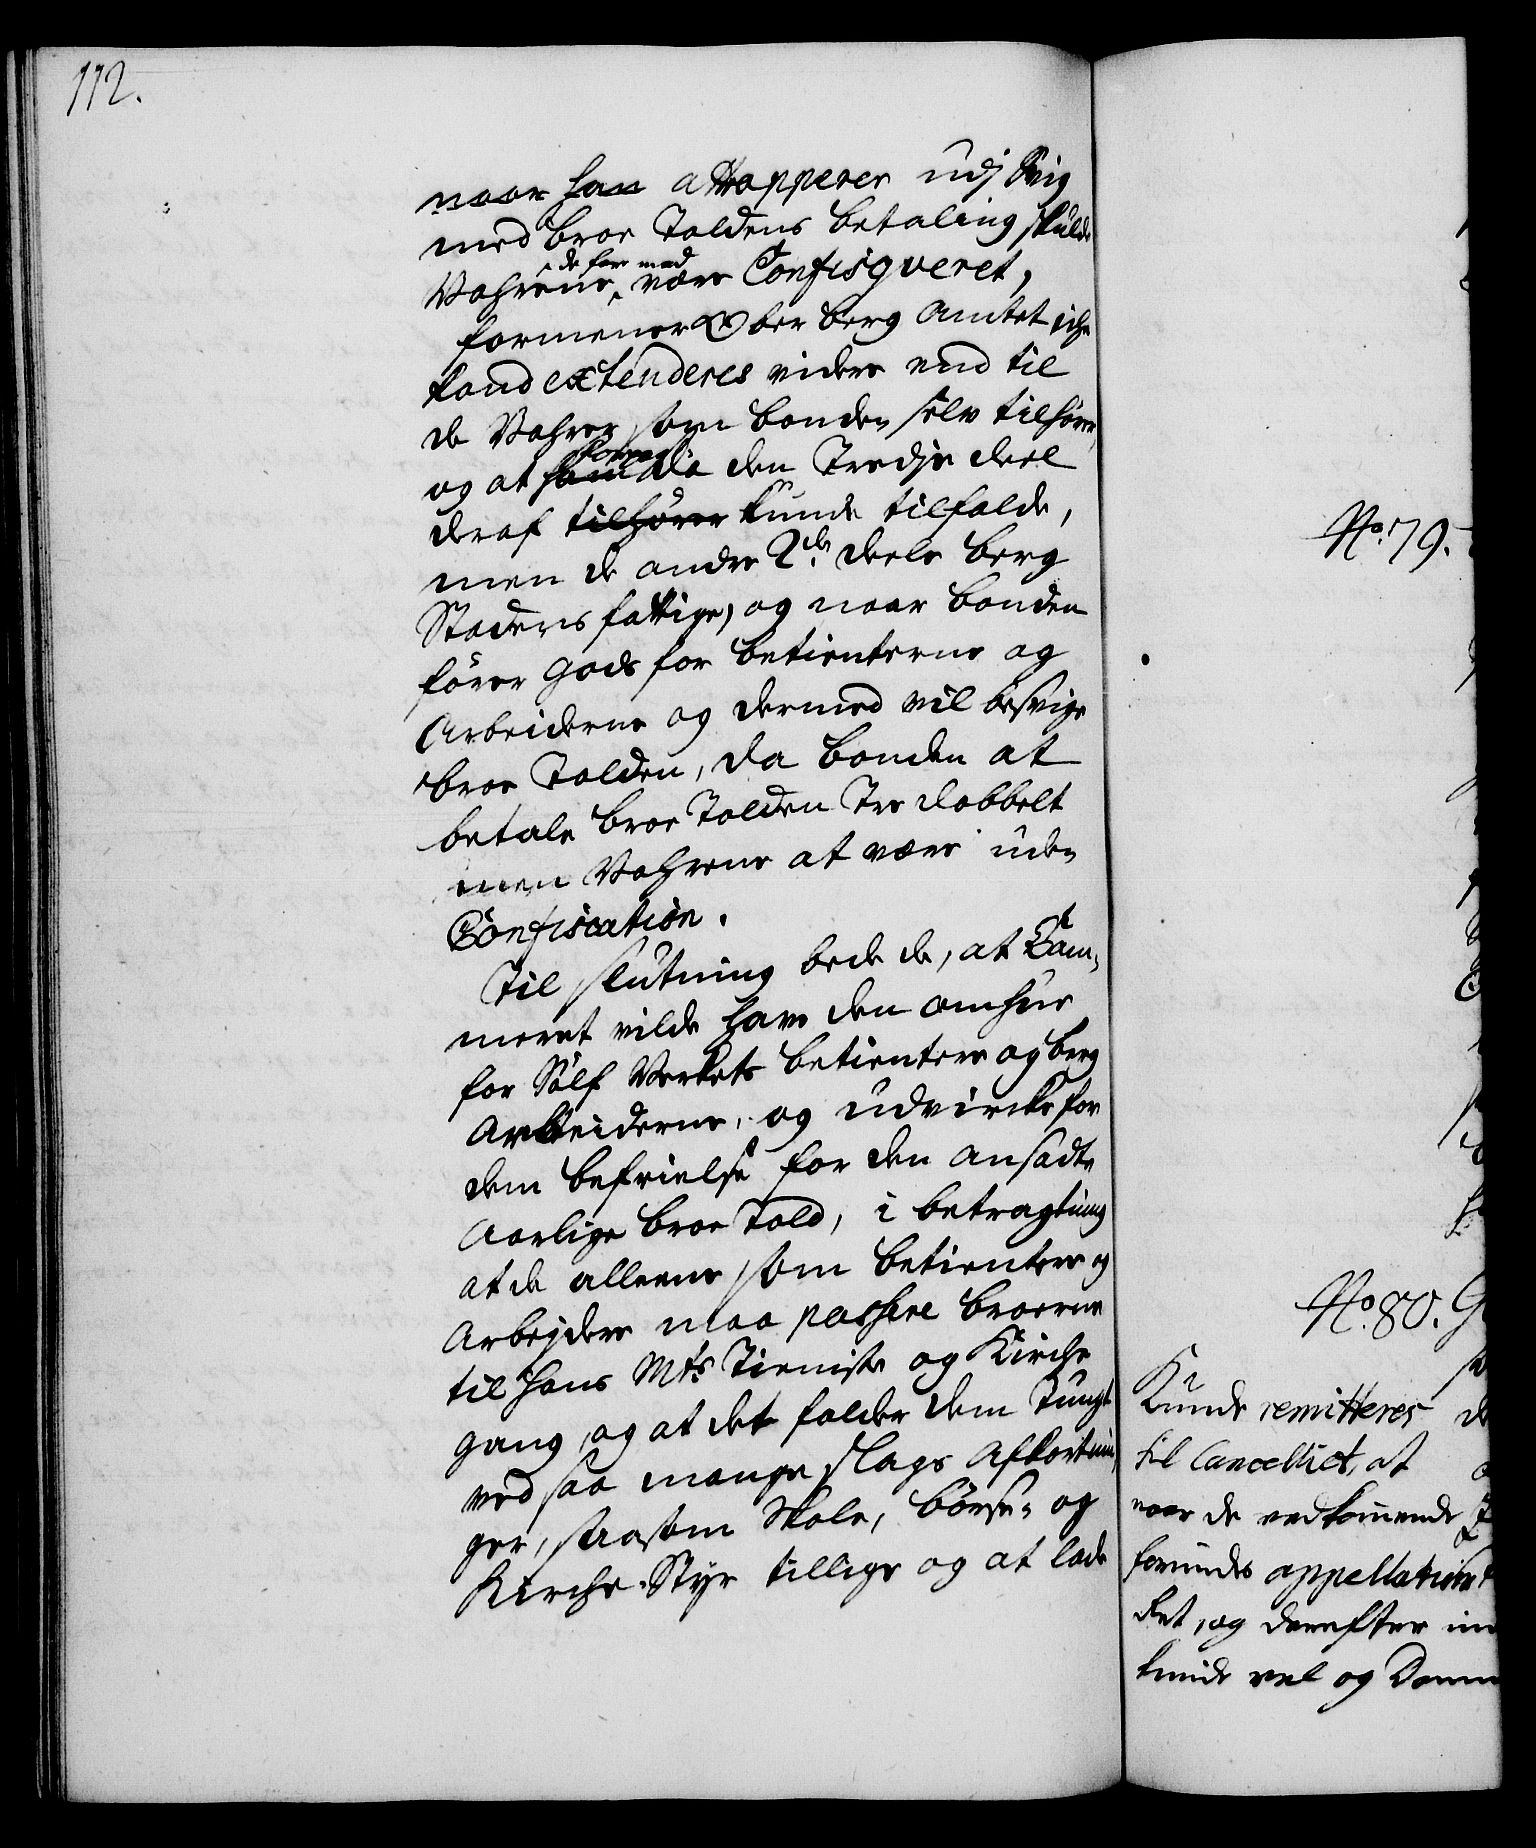 112.
naar han attrapperes udj Svig
med broe Toldens betaling skulde
Vahrene ^de for med være Confisqveret,
formener Ober berg Amtet iche
kand extenderes videre end til
de Vahrer som bonden selv tilhører,
og at den Tredje deel
deraf tilhører kunde tilfalde,
men de andre 2de deele berg
Stadens fattige, og naar bonden
fører gods for betienterne og
Arbeiderne og dermed vil besvige
broe Tolden, da bonden at
betale broe Tolden Tre dobbelt
men Vahrene at være uden
Confiscation.
Til slutning bede de, at Cam-
meret vilde have den omhue
for Sølf Verkets betientere og berg
Arbeiderne, og udvircke for
dem befrielse for den ansadte
Aarlige broe Told, i betragtning
at de alleene som betientere og
Arbejdere maa passere broerne
til hans Mts Tieniste og Kirche
gang, og at det falder dem Tungt
ved saa mange slags Afkortnin,
ger, saasom Skole, bøsse- og
Kirche-Styr tillige og at lade
No. 79.
No. 80.
Kunde remitteres
til Cancelliet, at
naar de vedkommende
forundes appellation
det, og derefter
kunde vel og